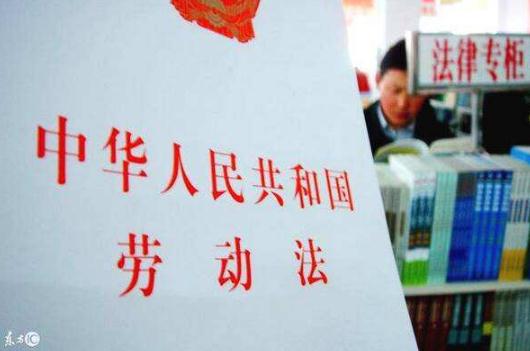 法律专柜
中华人民共和国
劳动法
东方IC